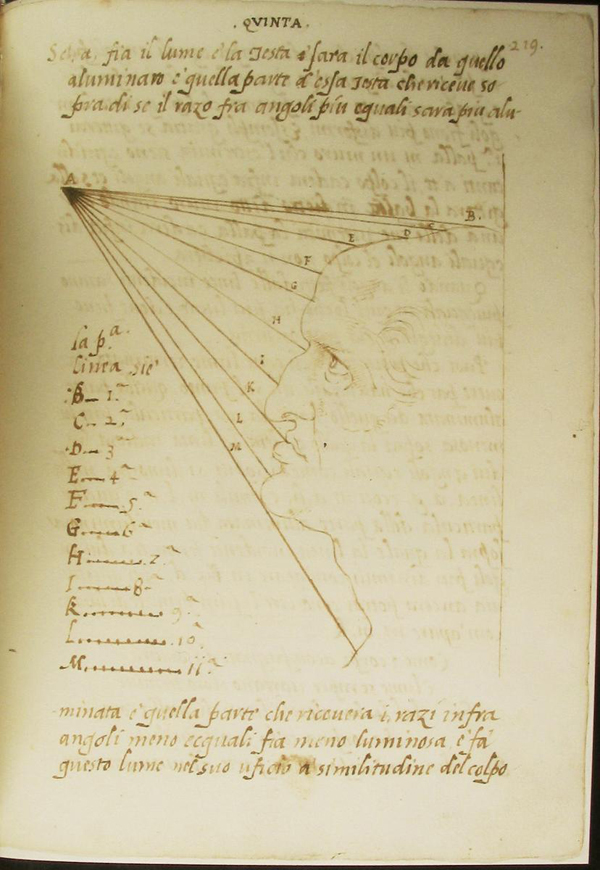 . QVINTA .
219.
Seᵃ, fia il lume e la Testa e sara il corpo da quello
aluminato e quella parte d'essa testa che riceue so
pra di se il razo fra angoli piu equali sara piu alu-
A
B.
C
D
E
F
G
H
I
K
L
M
la p.ª
linea sie
B_ 1.ª
C_ 2.ª
D_ 3
E_ 4.ª
F_ 5.ª
G_ 6.ª
H_ 7.ª
I_ 8.ª
K_ 9.ª
L_ 10.ª
M_ 11.ª
minata e quella parte che riceuera i, razi infra
angoli meno ecquali fia meno luminosa e fa
questo lume nel suo uficio a similitudine del colpo